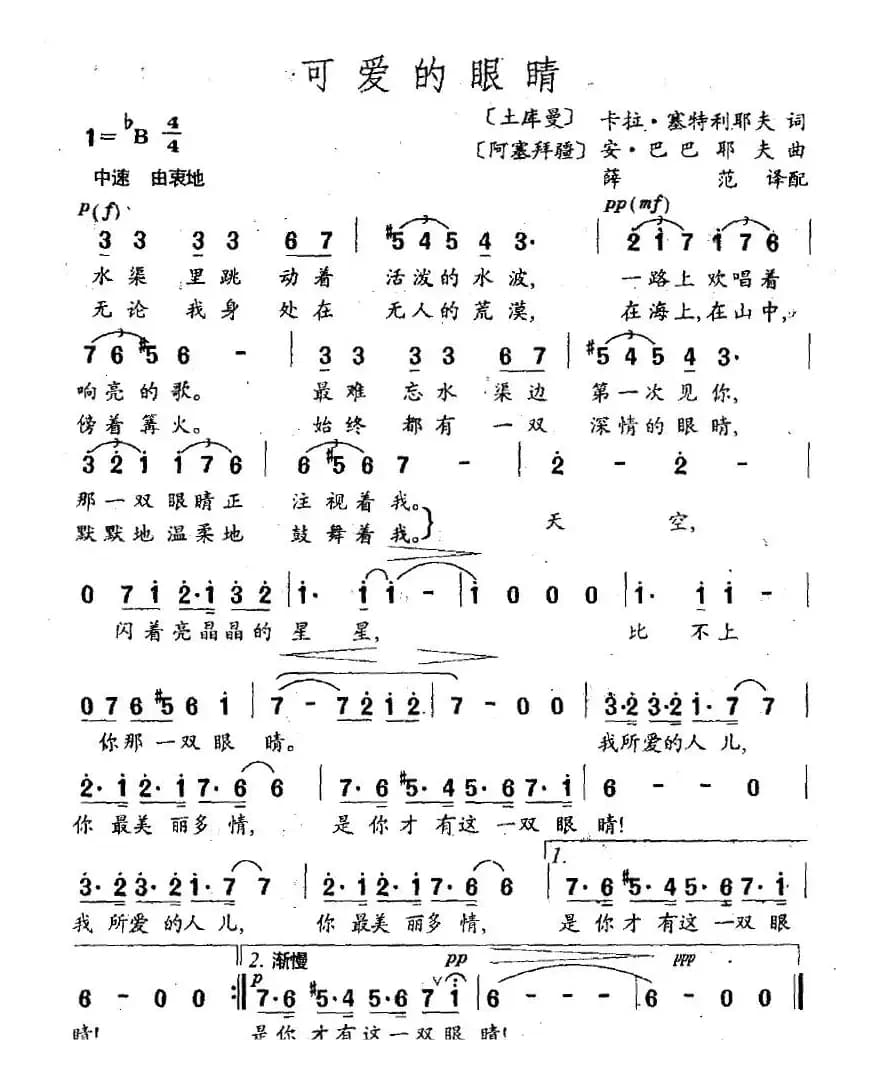 可爱的眼睛
1=♭B 4/4
〔土库曼〕 卡拉·塞特利耶夫 词
〔阿塞拜疆〕 安·巴巴耶夫 曲
薛 范 译配
中速 由衷地
p(f) pp(mf)
3 3 3 3 6 7 | #5 4 5 4 3· | 2 1 7 1 7 6 |
水渠里跳动着 活泼的水波, 一路上欢唱着
无论我身处在 无人的荒漠, 在海上,在山中,
7 6 #5 6 - | 3 3 3 3 6 7 | #5 4 5 4 3· |
响亮的歌。 最难忘水渠边 第一次见你,
傍着篝火。 始终都有一双 深情的眼睛,
3 2 1 1 7 6 | 6 #5 6 7 - | 2 - 2 - |
那一双眼睛正 注视着我。
默默地温柔地 鼓舞着我。 天 空,
0 7 1 2·1 3 2 | 1· 1 1 - | 1 0 0 0 | 1· 1 1 - |
闪着亮晶晶的星 星, 比不上
0 7 6 #5 6 1 | 7 - 7 2 1 2 | 7 - 0 0 | 3·2 3·2 1·7 7 |
你那一双眼 睛。 我所爱的人儿,
2·1 2·1 7·6 6 | 7·6 #5·4 5·6 7·1 | 6 - - 0 |
你最美丽多情, 是你才有这一双眼 睛!
1.
3·2 3·2 1·7 7 | 2·1 2·1 7·6 6 | 7·6 #5·4 5·6 7·1 |
我所爱的人儿, 你最美丽多情, 是你才有这一双眼
2. 渐慢 pp ppp
p
6 - 0 0 :‖ 7·6 #5·4 5·6 7 1 | 6 - - - | 6 - 0 0 ‖
睛! 是你才有这一双眼 睛!